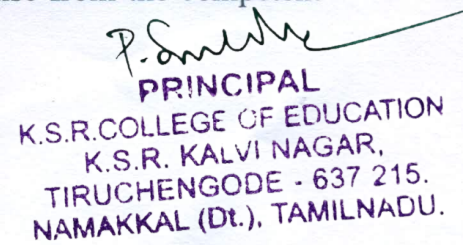 PRINCIPAL
K.S.R.COLLEGE OF EDUCATION
K.S.R. KALVI NAGAR,
TIRUCHENGODE - 637 215.
NAMAKKAL (Dt.), TAMILNADU.